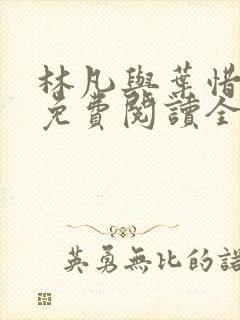 林凡與葉惜
免費閱讀全
英勇無比的諾